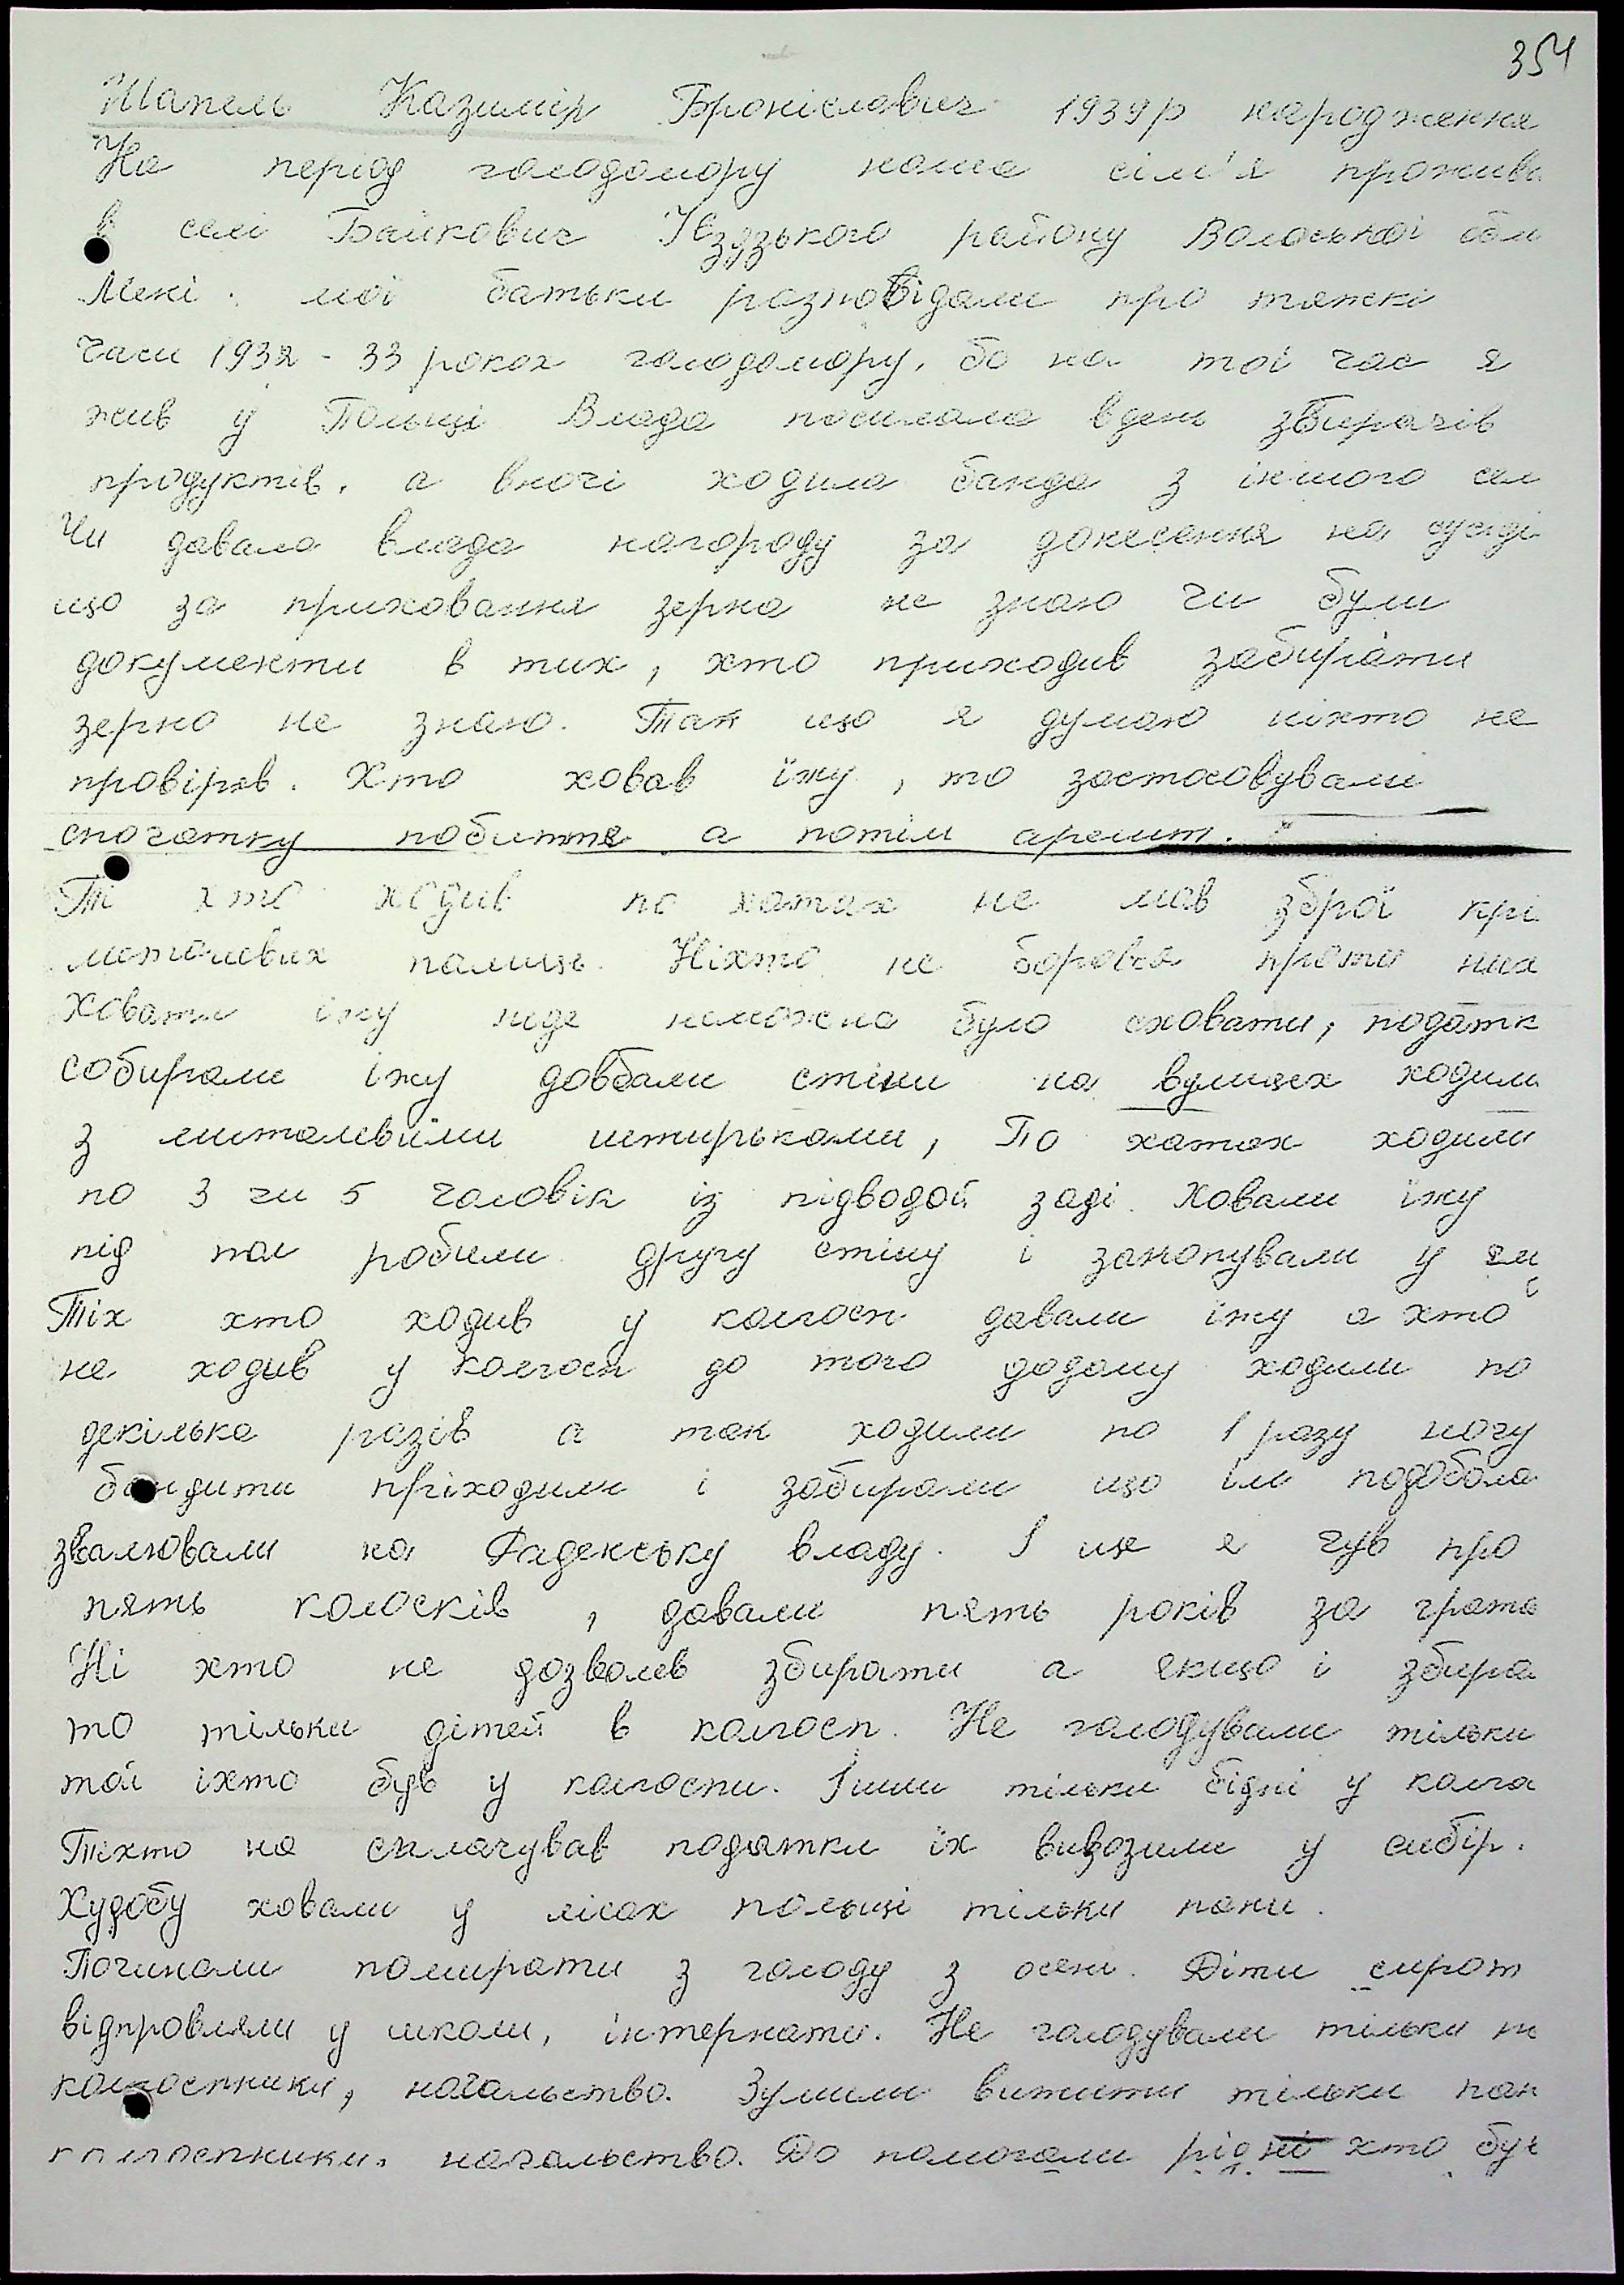 354
Шапель Казимір Броніславич 1939р народження
На період голодомору наша сім'я прожива
в селі Байкович район у Волоської обл
Мені мої батьки разповідали про тяжкі
Часи 1932 - 33 роках голодомору, бо на той час я
жив у Польщі Влада посилала вдень збирачів
продуктів, а вночі ходила банда з іншого сел
Чи давала влада нагороду за донесення на сусіді
що за приховання зерна не знаю чи були
документи в тих, хто приходив забирати
зерно не знаю. Так що я думаю ніхто не
провіряв. Хто ховав їжу, то застосовували
спочатку побиття а потім арешт.
Ті хто ходив по хатах не мав зброї крі
металевих палиць. Ніхто не боровся проти них
Ховати їжу ніде неможна було сховати, податк
собирали їжу довбали стіни на вулицях ходили
з миталевіими штирьками, По хатах ходили
по 3 чи 5 чоловік із підводой заді. Ховали їжу
під пол робили другу стіну і закопували у зем
Тіх хто ходив у колгосп давали їжу а хто
не ходив у колгосп до того додому ходили по
декілька разів а так ходили по 1 разу ночу
бандити пріходили і забирали що їм подобола
звалювали на Раденську владу. І ще я чув про
пять колосків, давали пять років за грата
Ні хто не дозволев збирати а якщо і збира
то тільки дітей в колгосп. Не голодували тільки
той іхто був у колгоспи. Ішли тільки бідні у колго
Тіхто не сплачував податки їх вивозили у сибір.
Худобу ховали у лісах польщі тільки пани.
Починали помирати з голоду з осени. Діти сирот
відправляли у школи, інтернати. Не голодували тільки
колгоспники, начальство. Зуміли вижити тільки пан
колгоспники, начальство. До помогали рідні хто був